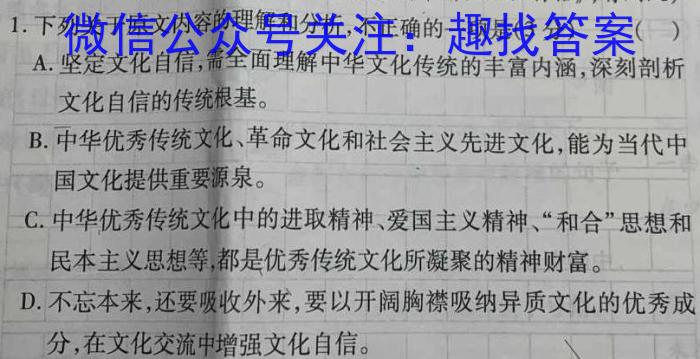 1. 下列关于原文内容的理解和分析,不正确的一项是(3分)( )
微信公众号关注:趣找答案
A. 坚定文化自信,需全面理解中华文化传统的丰富内涵,深刻剖析
文化自信的传统根基。
B. 中华优秀传统文化、革命文化和社会主义先进文化,能为当代中
国文化提供重要源泉。
C. 中华优秀传统文化中的进取精神、爱国主义精神、“和合”思想和
民本主义思想等,都是优秀传统文化所凝聚的精神财富。
D. 不忘本来,还要吸收外来,要以开阔胸襟吸纳异质文化的优秀成
分,在文化交流中增强文化自信。